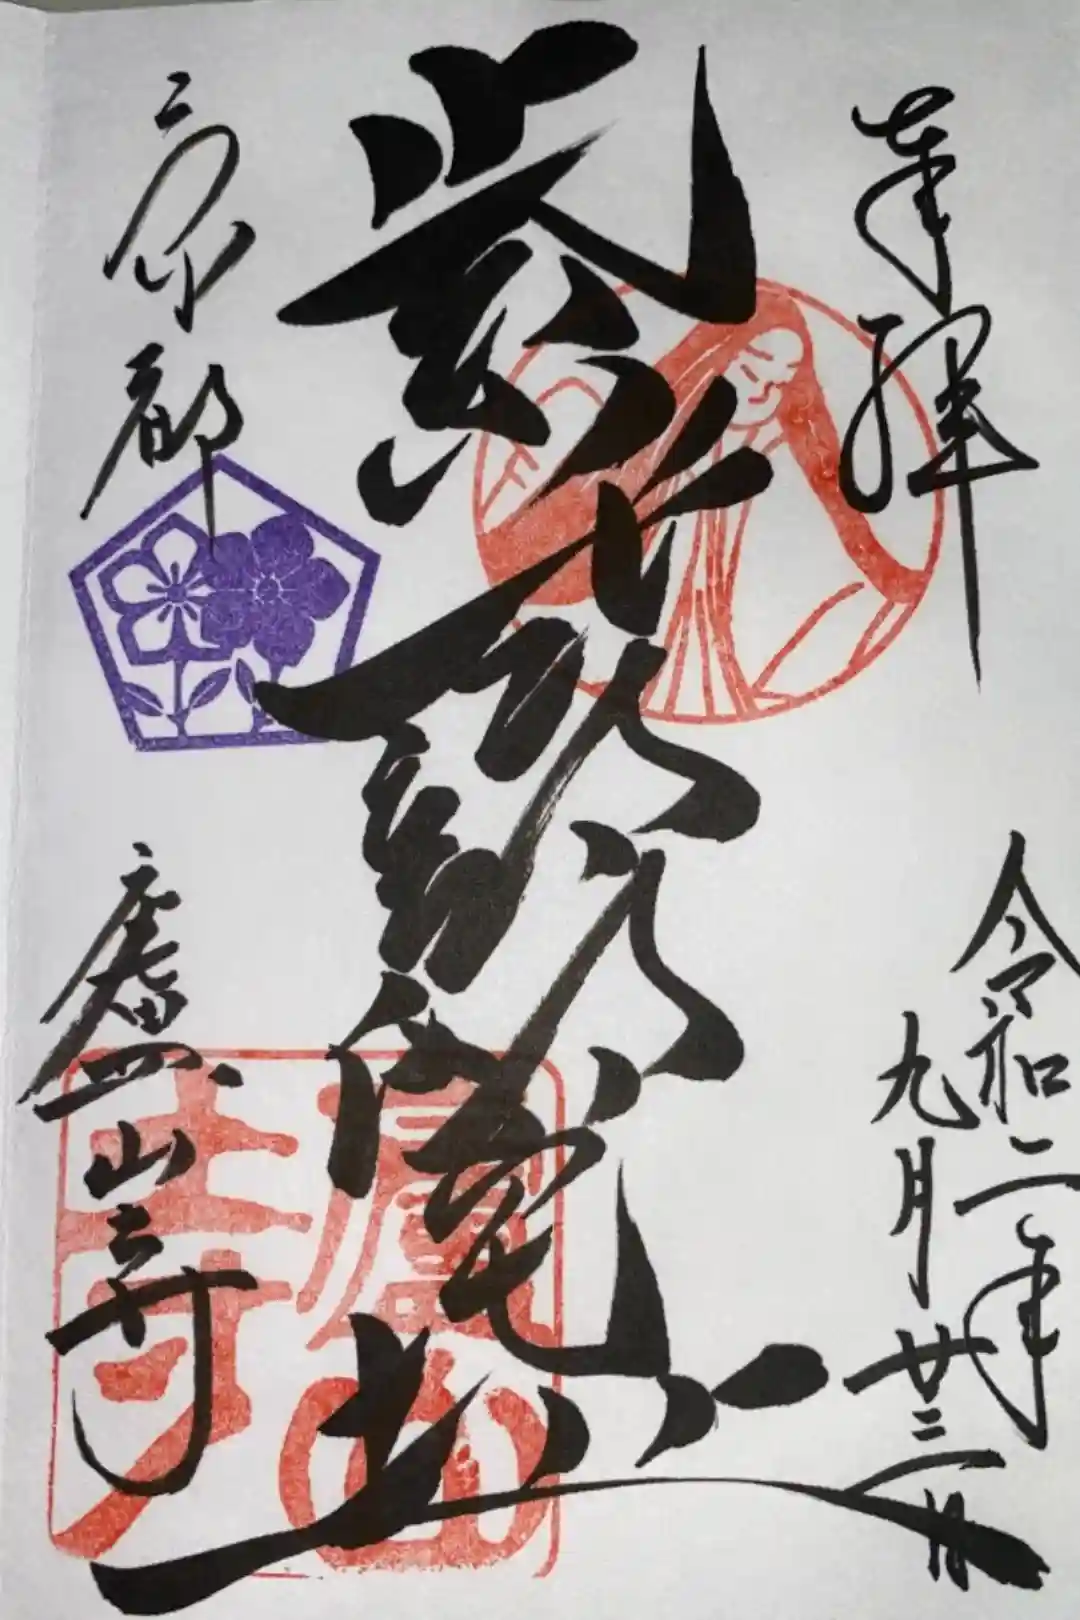 奉拝
令和二年
九月廿三日
紫式部邸宅址
京都
廬山寺
廬山寺